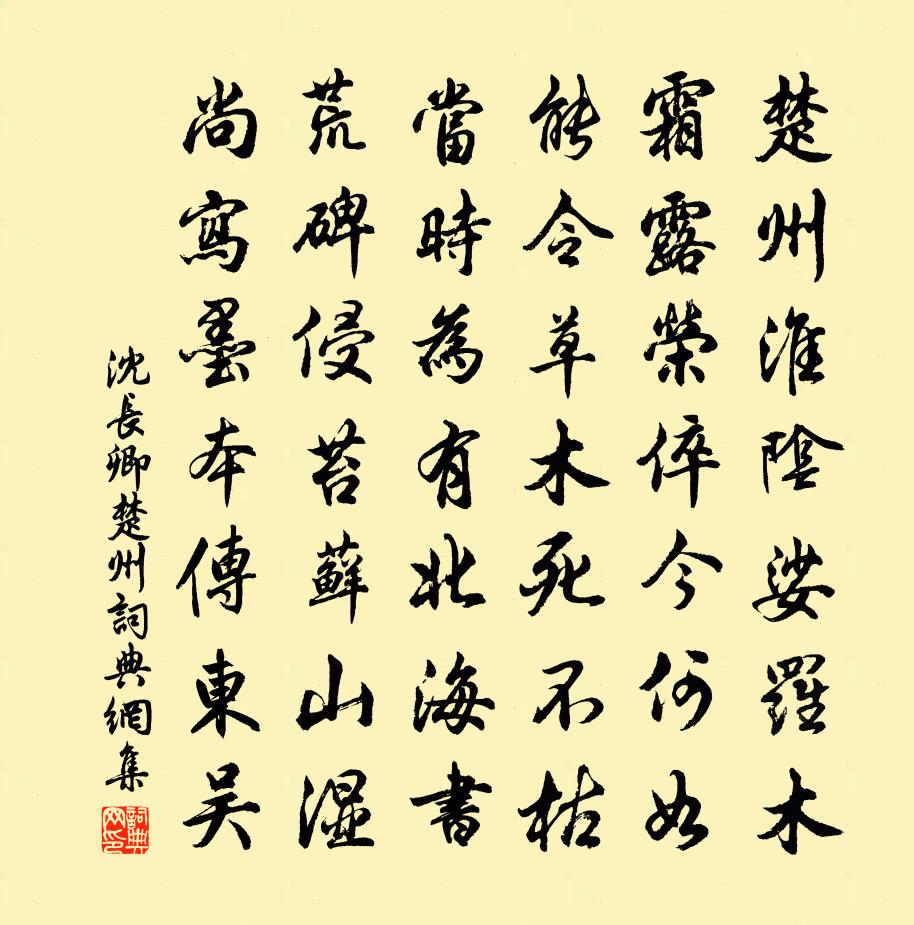 楚州淮陰娑羅木
霜露榮倅今何如
能令草木死不枯
當時為有北海書
荒碑侵苔蘚山湿
尚寫墨本傳東吴
沈長卿楚州詞典網集
詞典
网印